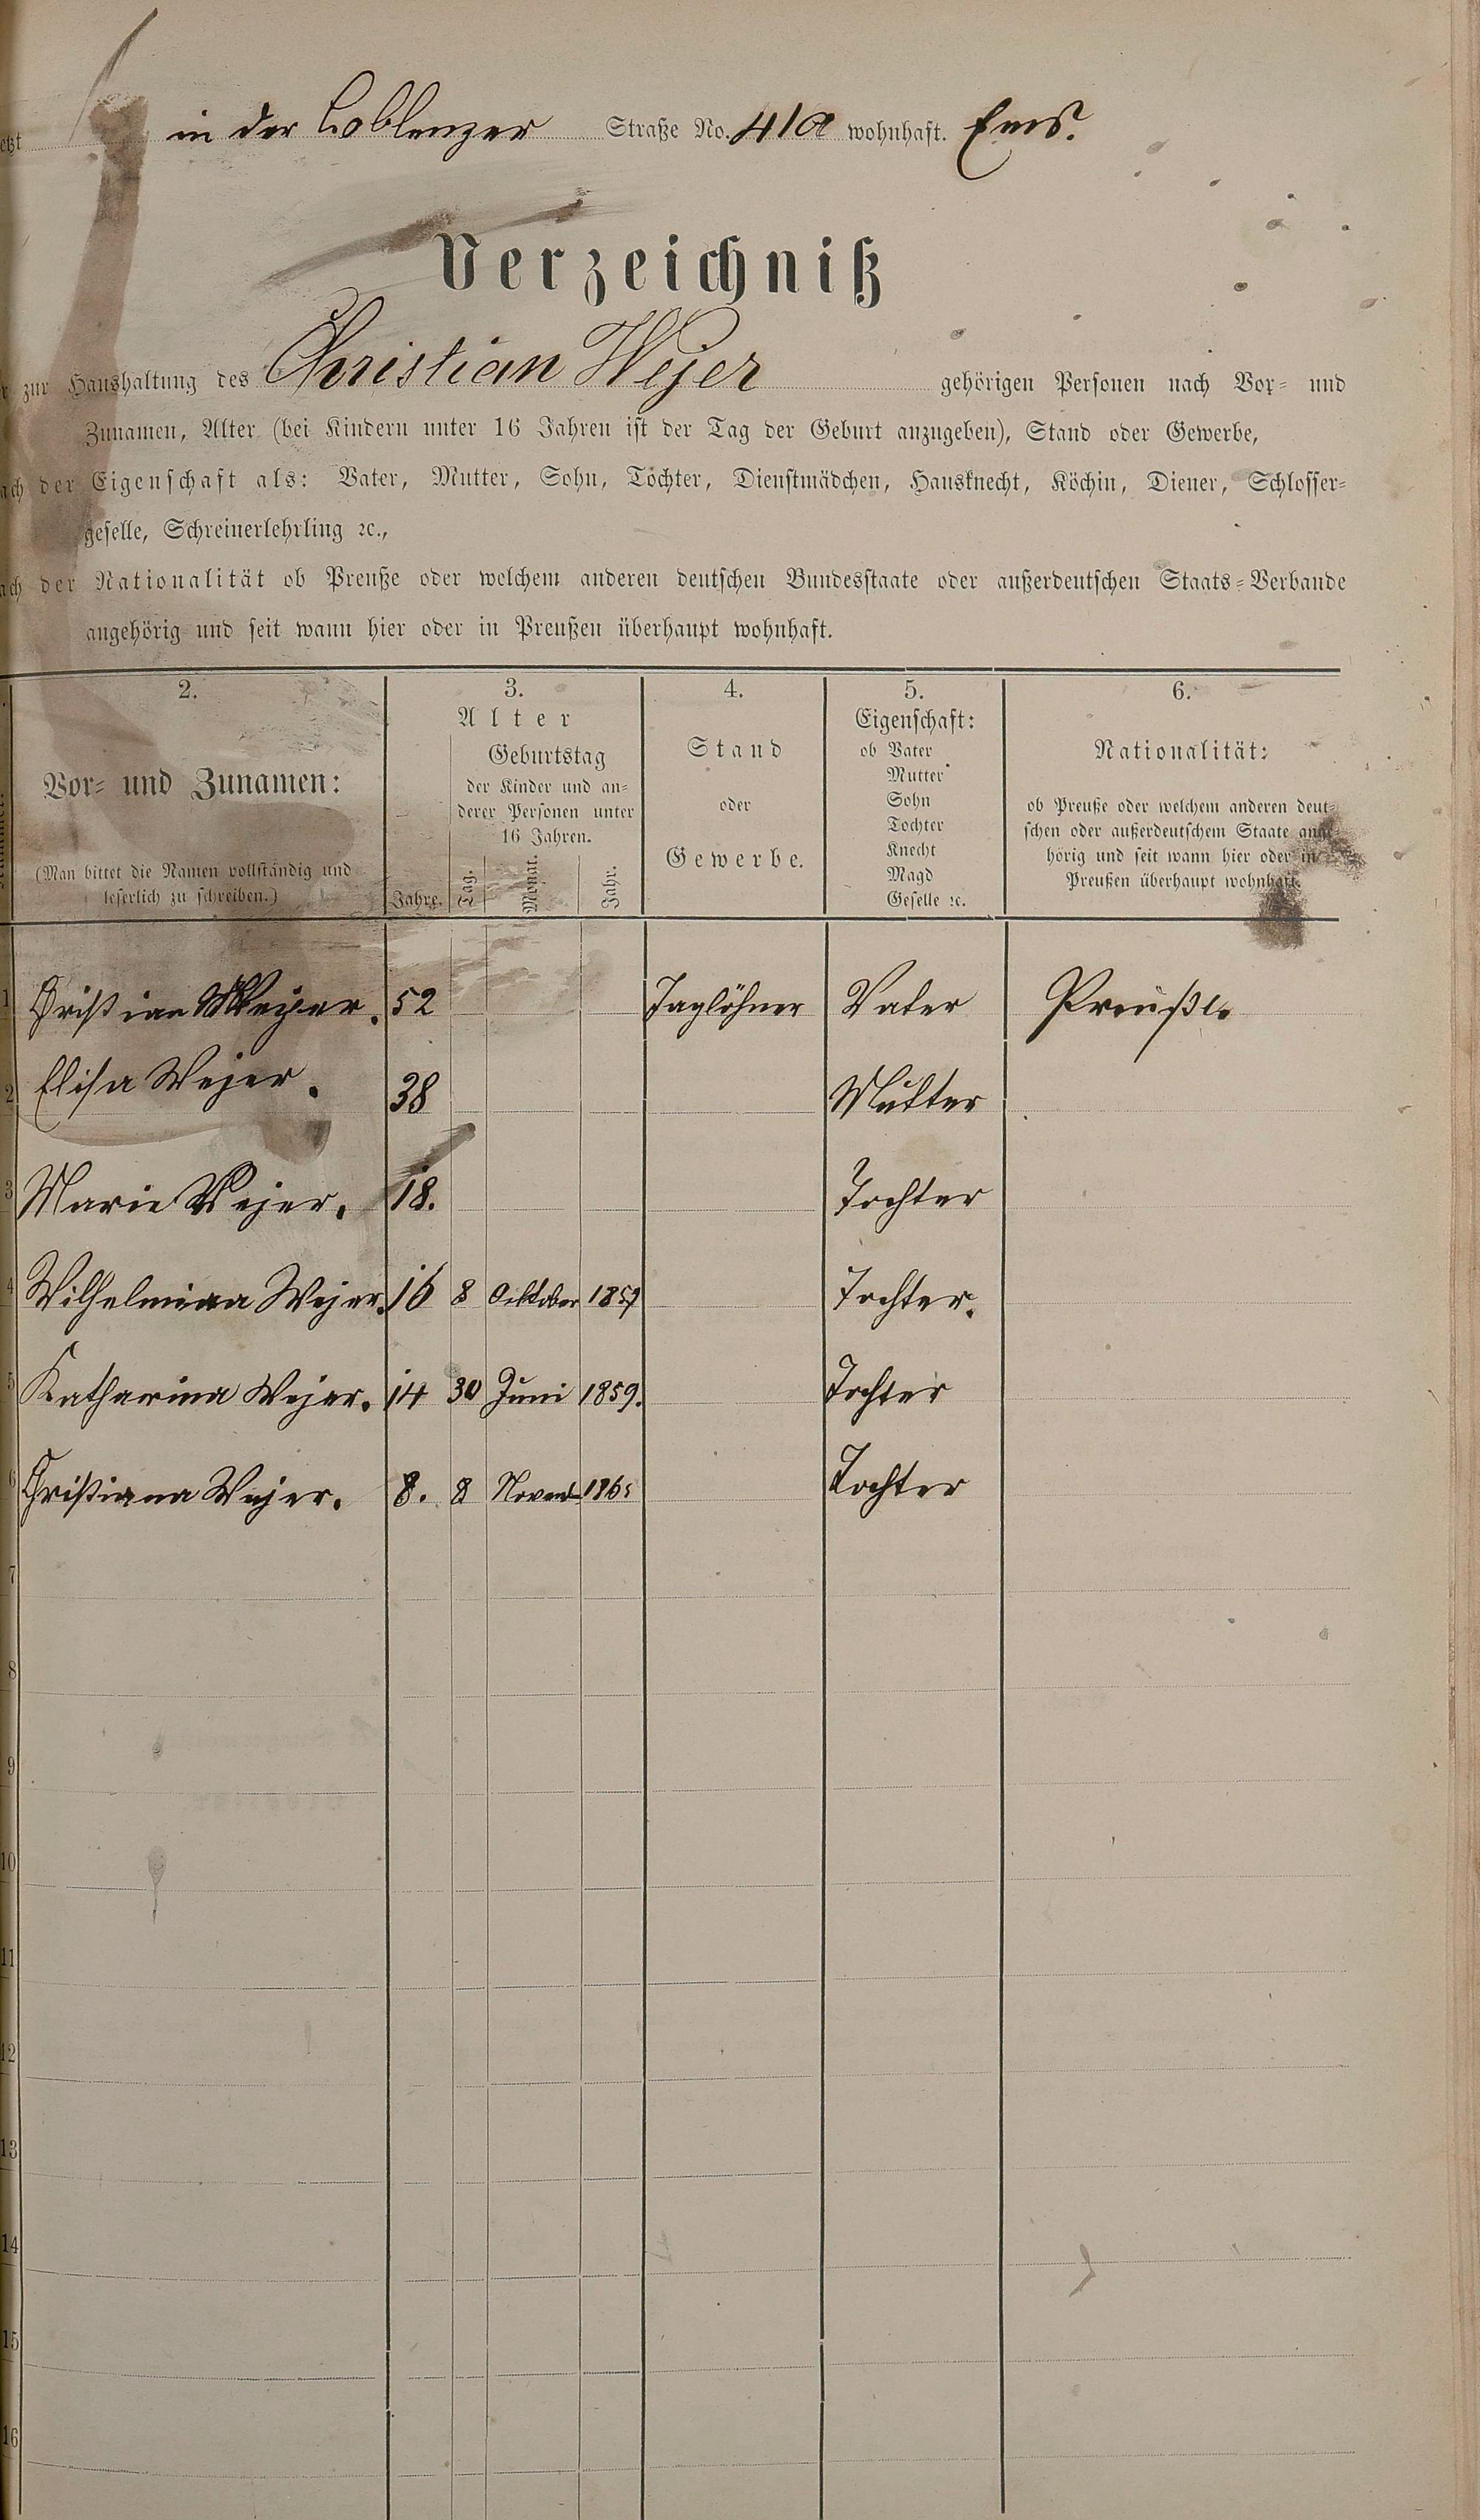 etzt in der Coblenzer Straße No. 41a wohnhaft. Ems.
Verzeichniß
zur Haushaltung des Christian Wejer gehörigen Personen nach Vor= und
Zunamen, Alter (bei Kindern unter 16 Jahren ist der Tag der Geburt anzugeben), Stand oder Gewerbe,
ach der Eigenschaft als: Vater, Mutter, Sohn, Tochter, Dienstmädchen, Hausknecht, Köchin, Diener, Schlosser=
geselle, Schreinerlehrling ꝛc.,
ach der Nationalität ob Preuße oder welchem anderen deutschen Bundesstaate oder außerdeutschen Staats=Verbande
angehörig und seit wann hier oder in Preußen überhaupt wohnhaft.
2.
Vor= und Zunamen:
(Man bittet die Namen vollständig und
leserlich zu schreiben.)
3.
Alter
Geburtstag
der Kinder und an=
derer Personen unter
16 Jahren.
Jahre. Tag. Monat. Jahr.
4.
Stand
oder
Gewerbe.
5.
Eigenschaft:
ob Vater
Mutter
Sohn
Tochter
Knecht
Magd
Geselle ꝛc.
6.
Nationalität:
ob Preuße oder welchem anderen deut=
schen oder außerdeutschem Staate ange
hörig und seit wann hier oder in
Preußen überhaupt wohnhaft.
1 Christian Wejer. 52 Taglöhner Vater Preuße.
2 Elisa Wejer. 38 Mutter
3 Marie Wejer. 18. Tochter
4 Wilhelmina Wejer. 16 8 Oktober 1857 Tochter.
5 Katharina Wejer. 14 30 Juni 1859. Tochter
6 Christiana Wejer. 8. 8 Novemb 1865 Tochter
7
8
9
10
11
12
13
14
15
16